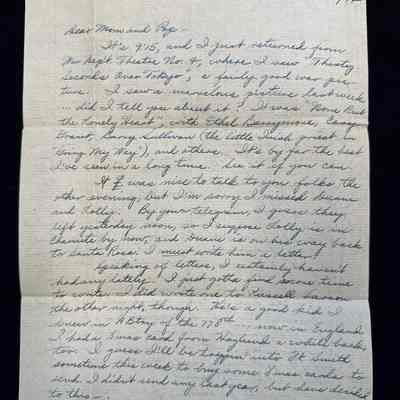 Dear Mom and Pop -
It's 9:15, and I just returned from
Theatre No. 4, where I saw "Thirty
Seconds Over Tokyo", a fairly good war pic-
ture. I saw a marvelous picture last week
... did I tell you about it? It was "None But
the Lonely Heart", with Ethel Barrymore, Cary
Grant, Barry (the little Irish priest in
"Going My Way"), and others. It's by far the best
I've seen in a long time. See it if you can.
It was nice to talk to you folks the
other evening, but I'm sorry I missed Duane
and Dolly. By your telegram, I guess they
left yesterday noon, so I suppose Dolly is in
Chanute by now, and Duane is on his way back
to Santa Rosa. I must write him a letter!
Speaking of letters, I certainly haven't
had any lately. I just gotta find some time
to write. I did write one to Russell
the other night, though. He's a good kid I
knew in A Btry of the ... now in England.
I had a Xmas card from a while back,
too. I guess I'll be into Ft Smith
sometime this week to buy some Xmas cards to
send. I didn't send any last year, but have decided
to this